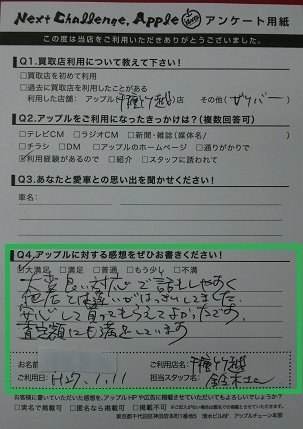 Next Challenge, Apple アンケート用紙
この度は当店をご利用いただきありがとうございました。
Q1.買取店利用について教えて下さい!
□買取店を初めて利用
□過去に買取店を利用したことがある
利用した店舗: アップル(千種竹越)店 その他(ガリバー)
Q2.アップルをご利用になったきっかけは?(複数回答可)
□テレビCM □ラジオCM □新聞・雑誌(媒体名/ )
□チラシ □DM □アップルのホームページ □通りがかりで
☑利用経験があるので □紹介 □スタッフに誘われて
Q3.あなたと愛車との思い出を聞かせください!
車名:
Q4.アップルに対する感想をぜひお書きください!
☑大満足 □満足 □普通 □もう少し □不満
大変良い対応で話もしやすく
他店とは違いがはっきりしました。
安心して買ってもらえてよかったです。
査定額にも満足しています
お名前
ご利用店名: 千種竹越
ご利用日: H27.1.11
担当スタッフ名: 鈴木さん
お客様に書いていただいた感想を、アップルHPや広告に掲載させていただいてもよろしいでしょうか?
□実名で掲載可 □匿名なら掲載可 □掲載不可
東京都千代田区神田岩本町1番地5 清水ビル6F アップルチェーン本部